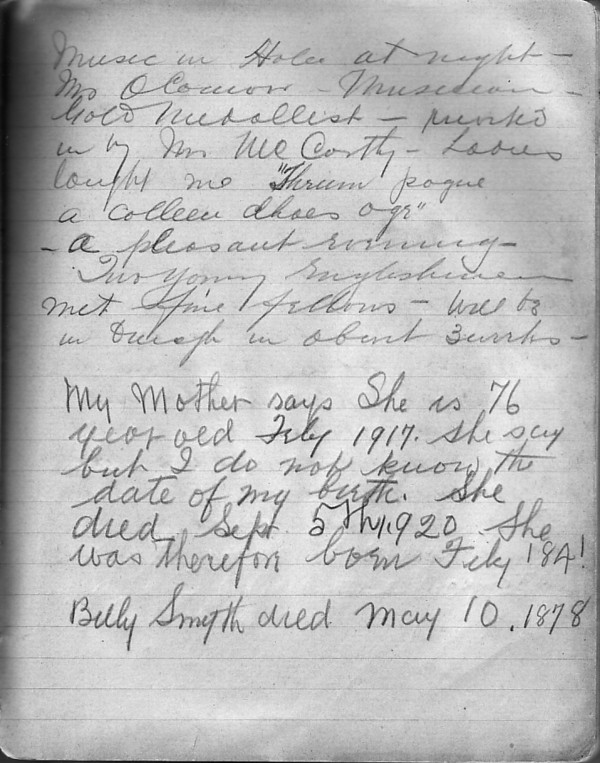 Music in Hotel at night –
Mrs O'Connor – Musician –
Gold Medallist – 
in by Mrs McCarthy – Ladies
taught me "Thrum pogue
a colleen dhoes oge"
– a pleasant evening –
Two young Englishmen
met fine fellows – Will be
in in about 3 weeks –
My Mother says She is 76
year old Feby 1917. She say
but I do not know the
date of my birth. She
died Sept 5th 1920 She
was therefore born Feby 1841
Billy Smyth died May 10. 1878